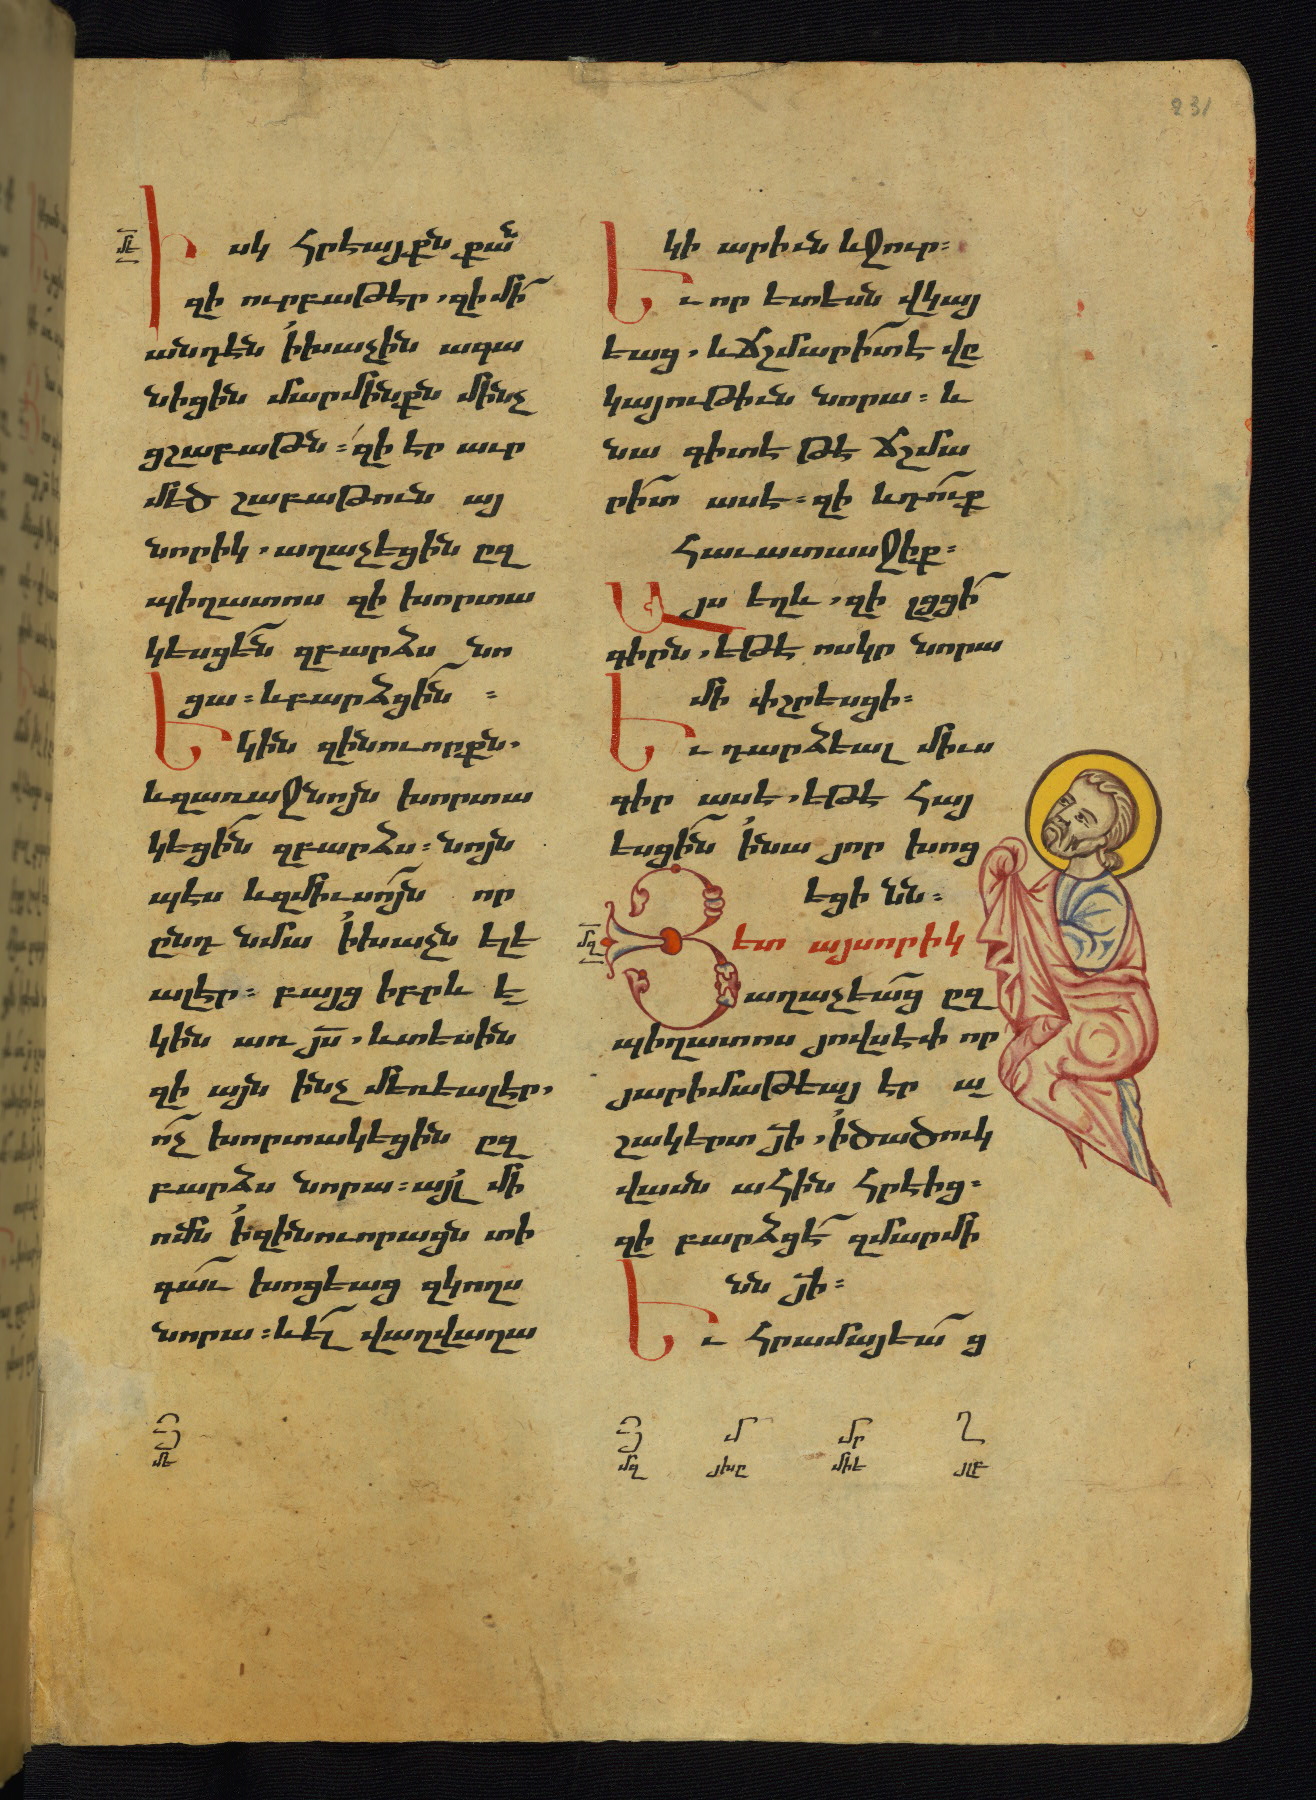 231
մե
Իսկ Հրեայքն քան
զի ուրբաթ էր, զի մի
անդէն ՚ի խաչին ագա
նիցին մարմինքն մինչ
ցշաբաթն ։ զի էր աւր
մեծ շաբաթուն այ
նորիկ, աղաչեցին ըզ
պիղատոս զի խորտա
կեսցեն զբարձս նո
ցա ։ և բարձցին ։
Եկին զինուորքն,
և զառաջնոյն խորտա
կեցին զբարձս ։ նոյն
պէս և զմիւսոյն որ
ընդ նմա ՚ի խաչն ելե
ալ էր ։ բայց իբրև ե
կին առ յս, և տեսին
զի այն ինչ մեռեալ էր,
ոչ խորտակեցին ըզ
բարձս նորա ։ այլ մի
ոմն ՚ի զինուորացն տի
գաւ խոցեաց զկողս
նորա ։ և ել վաղվաղա
կի արիւն և ջուր ։
Եւ որ ետեսն վկայ
եաց, և ճշմարիտ է վը
կայութիւն նորա ։ և
նա գիտէ թէ ճշմա
րիտ ասէ ։ զի և դուք
Հաւատասջիք ։
Այս եղև, զի լցցի
գիրն, եթէ ոսկր նորա
մի փշրեսցի ։
Եւ դարձեալ միւս
գիր ասէ, եթէ Հայ
եսցին ՚ի նա յոր խոց
եցինն ։
մզ
Յետ այսորիկ
աղաչեաց ըզ
պիղատոս յովսէփ որ
յարիմաթեայ էր ա
շակերտ յի, ՚ի ծածուկ
վասն ահին Հրէից ։
զի բարձցէ զմարմի
նն յի ։
Եւ Հրամայեաց
մե
մզ յխը միե յլբ